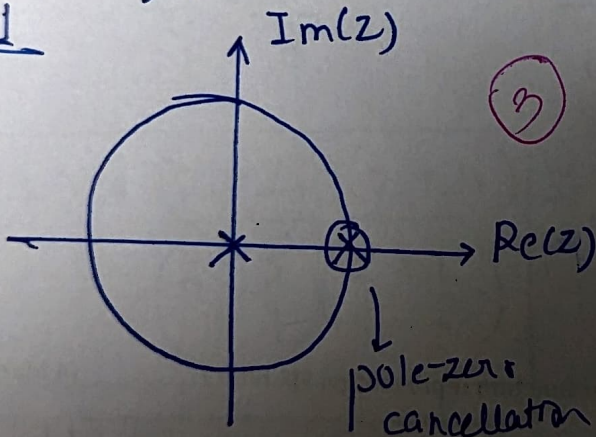 1
Im(z)
3
Re(z)
pole-zero
cancellation